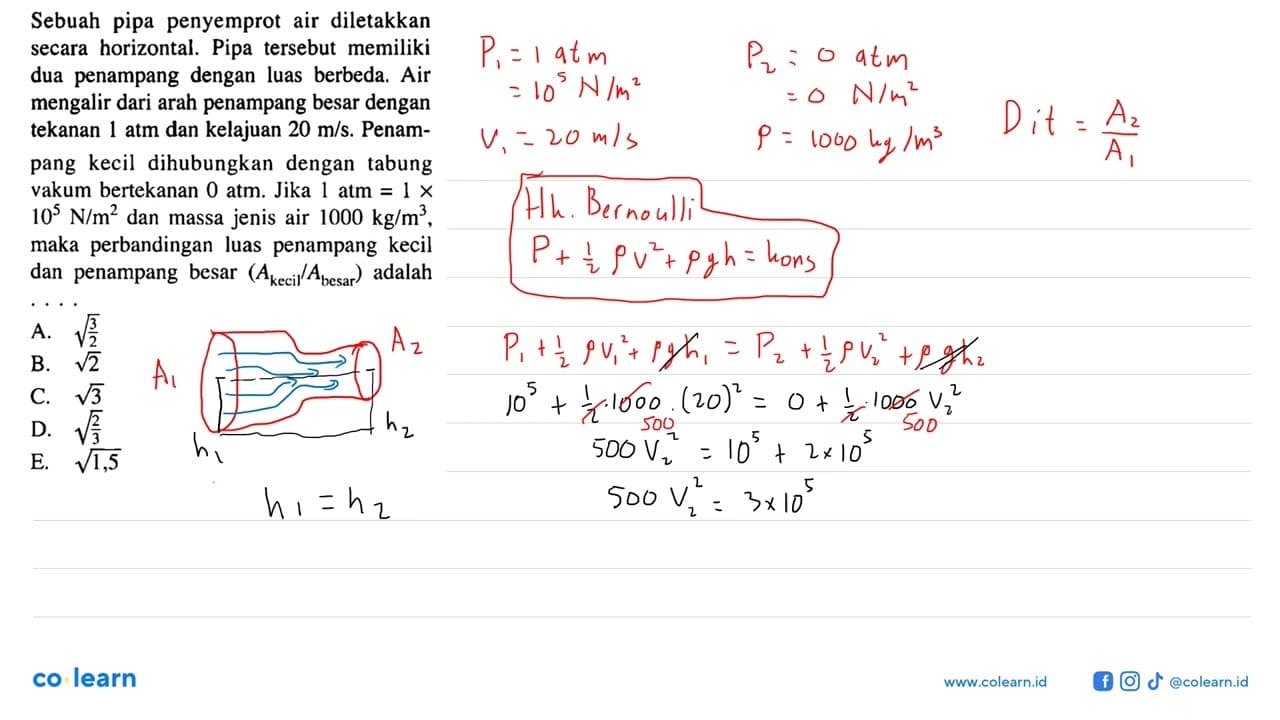 Sebuah pipa penyemprot air diletakkan
secara horizontal. Pipa tersebut memiliki
dua penampang dengan luas berbeda. Air
mengalir dari arah penampang besar dengan
tekanan 1 atm dan kelajuan 20 m/s. Penam-
pang kecil dihubungkan dengan tabung
vakum bertekanan 0 atm. Jika 1 atm = 1 ×
10⁵ N/m² dan massa jenis air 1000 kg/m³,
maka perbandingan luas penampang kecil
dan penampang besar (A_kecil/A_besar) adalah
. . . .
A. √(3/2)
B. √2
C. √3
D. √(2/3)
E. √1,5
A₁
A₂
h₁
h₂
h₁ = h₂
P₁ = 1 atm
= 10⁵ N/m²
V₁ = 20 m/s
P₂ = 0 atm
= 0 N/m²
ρ = 1000 kg/m³
Dit = A₂/A₁
Hk. Bernoulli
P + ½ ρv² + ρgh = kons
P₁ + ½ ρv₁² + ρgh₁ = P₂ + ½ ρv₂² + ρgh₂
10⁵ + ½ · 1000 · (20)² = 0 + ½ · 1000 V₂²
500 500
500 V₂² = 10⁵ + 2 × 10⁵
500 V₂² = 3 × 10⁵
co learn
www.colearn.id
@colearn.id